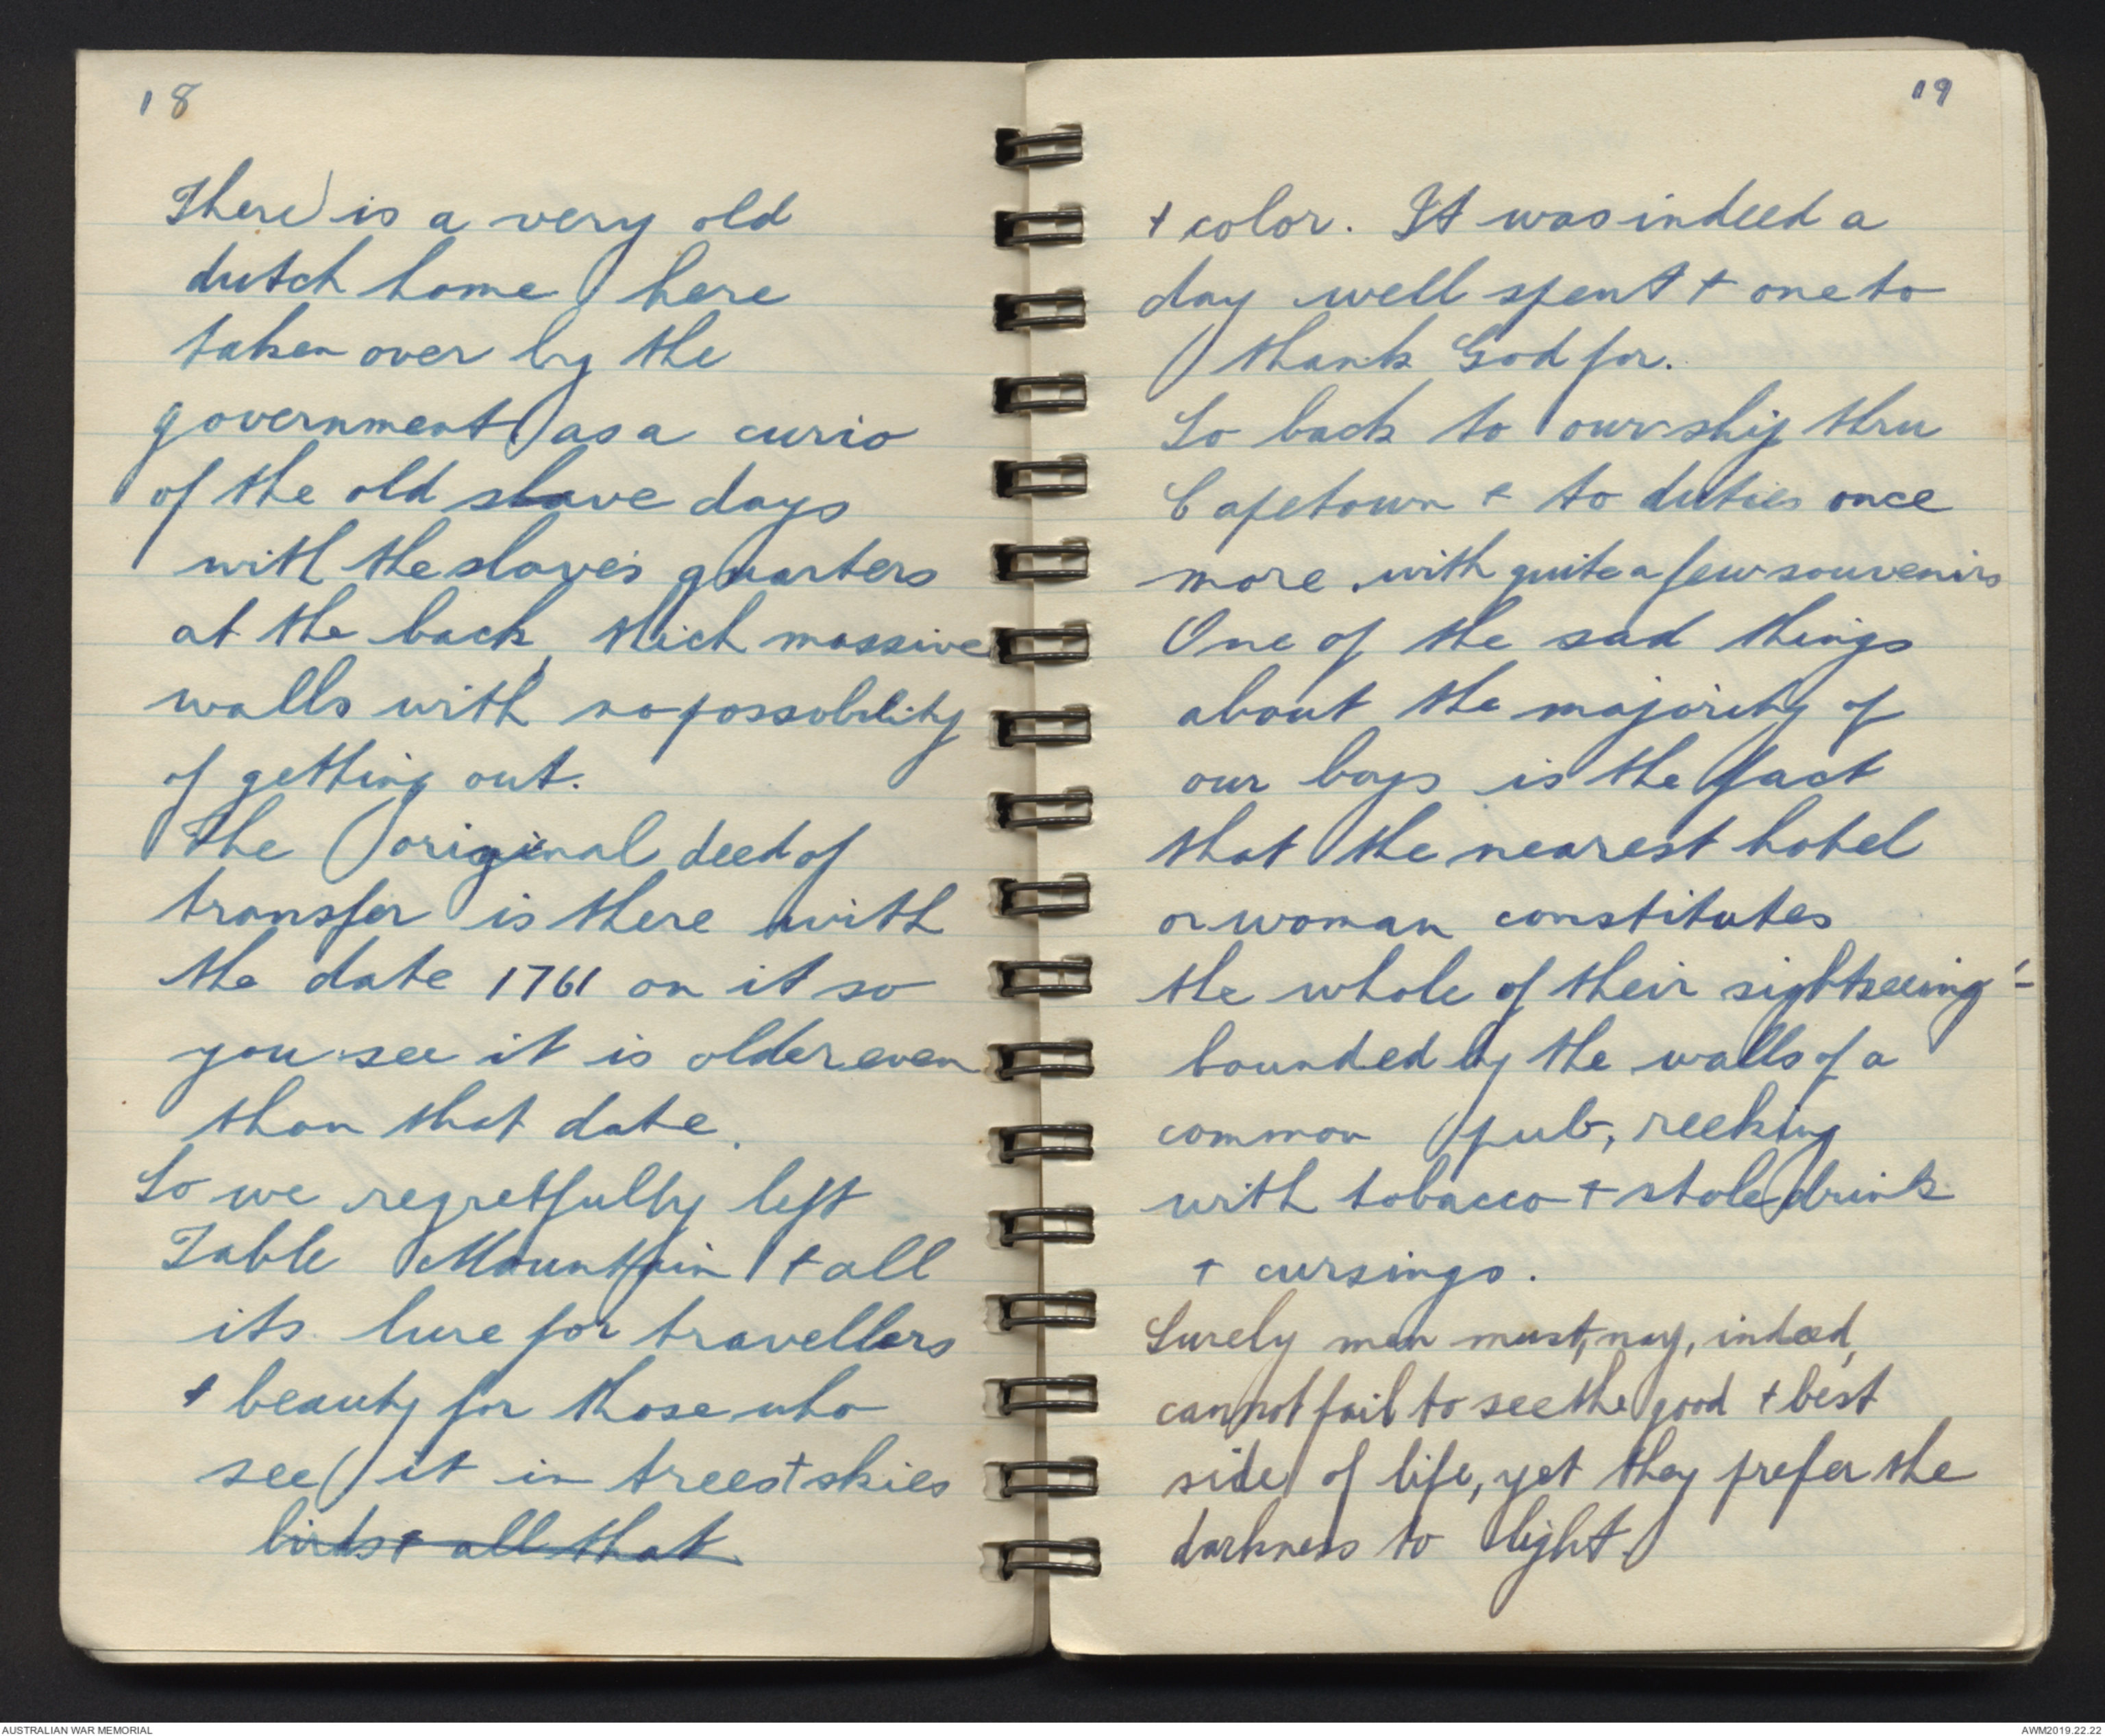 18
There is a very old
dutch home here
taken over by the
government, as a curio
of the old slave days
with the slave's quarters
at the back, thick massive
walls with no possobility
of getting out.
The original deed of
transfer is there with
the date 1761 on it so
you see it is older even
than that date.
So we regretfully left
Table Mountain + all
its lure for travellers
+ beauty for those who
see it in trees + skies
birds + all that
19
+ color. It was indeed a
day well spent + one to
thank God for.
So back to our ship thru
Capetown + to duties once
more with quite a few souvenirs
One of the sad things
about the majority of
our boys is the fact
that the nearest hotel
or woman constitutes
the whole of their sightseeing -
bounded by the walls of a
common pub, reeking
with tobacco + stale drink
+ cursings.
Surely men must, nay, indeed,
cannot fail to see the good + best
side of life, yet they prefer the
darkness to light.
AUSTRALIAN WAR MEMORIAL
AWM2019.22.22